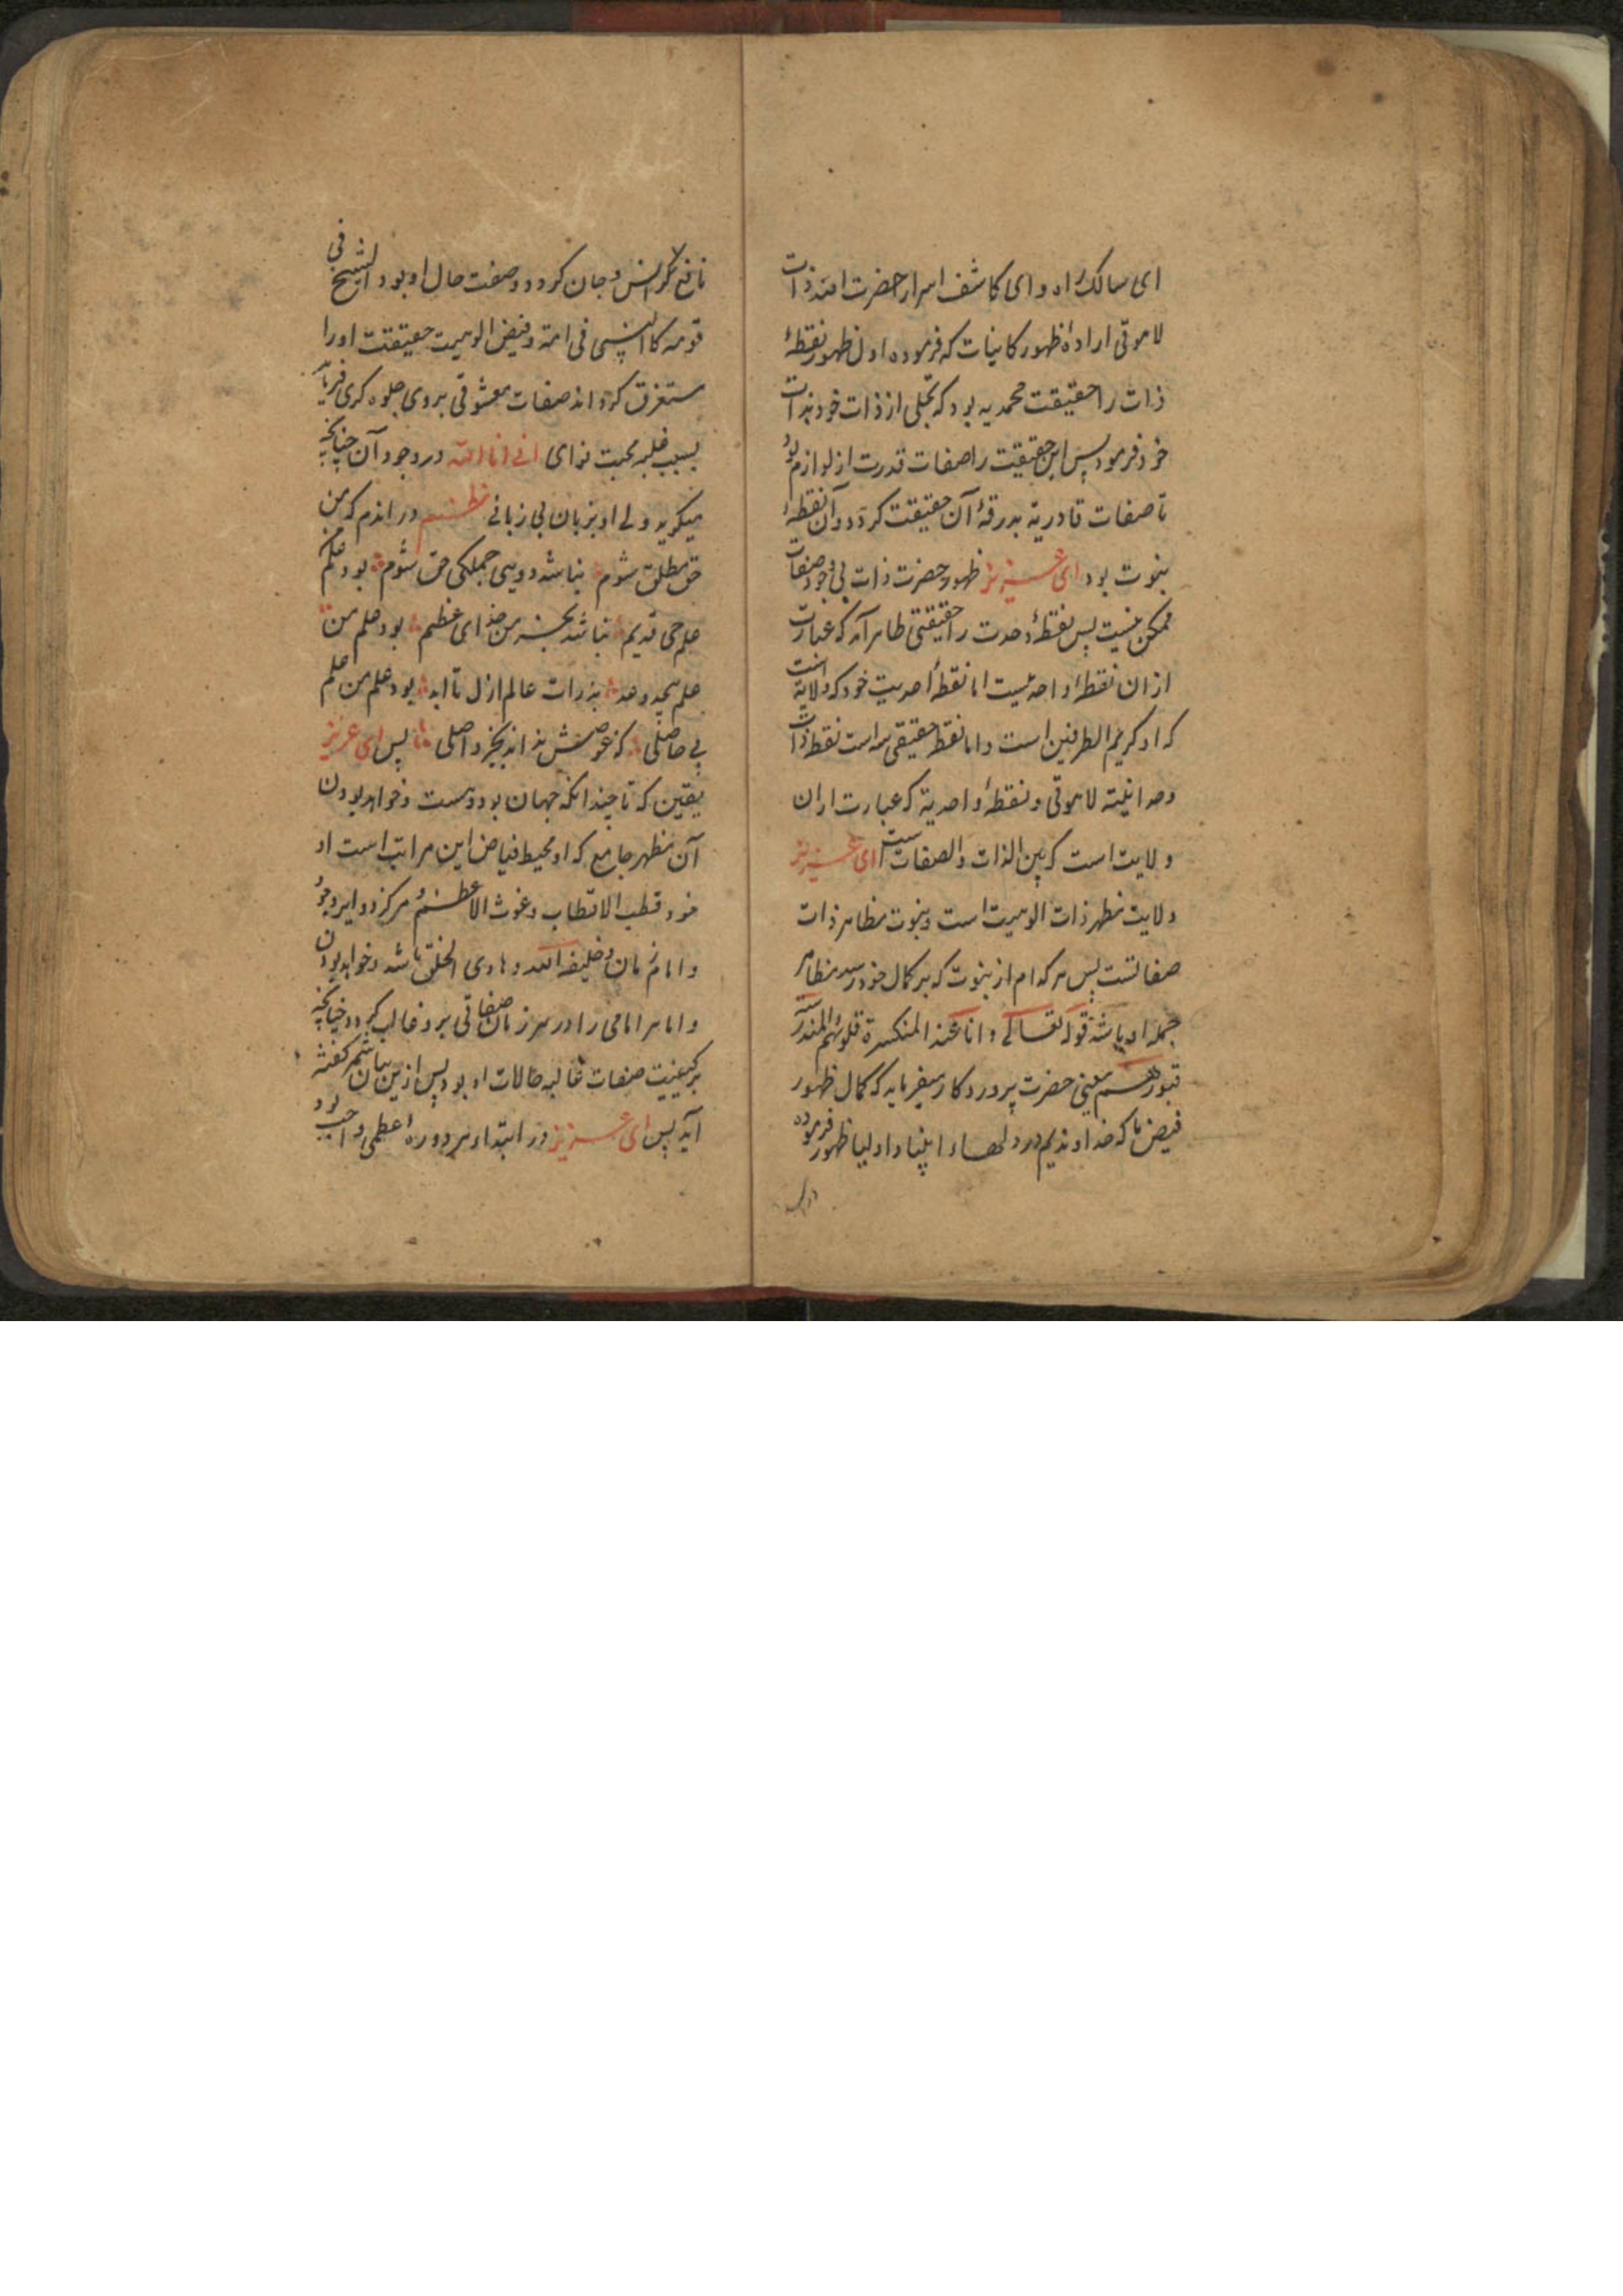 ای سالک راه و ای کاشف اسرار حضرت الله ذات
لاهوتی اراده ظهور کاینات که فرموده اول ظهور نقطهٔ
ذات را حقیقت محمدیه بود که تجلی از ذات خود بذات
خود فرمود پس این حقیقت را صفات قدرت از لوازم بود
تا صفات قادریة بدرقهٔ آن حقیقت کردد و آن نقطهٔ
نبوت بود ای عزیز ظهور حضرت ذات بی وجود صفات
ممکن نیست پس نقطهٔ وحدت را حقیقتی ظاهر آمد که عبارت
ازان نقطهٔ واحدیست اما نقطهٔ احدیت خود که ولایة است
که او کریم الطرفین است و اما نقطه حقیقی سه است نقطه ذات
وحدانیته لاهوتی و نقطهٔ واحدیة که عبارت ازان
ولایت است که بین الذات و الصفات است ای عزیز
ولایت مظهر ذات الوهیت است و نبوت مظاهر ذات
صفاتست پس هر کدام از نبوت که بر کمال خود رسد مظاهر
جمله او باشد قوله تعالی و انا عند المنکسرة قلوبهم المندرسة
قبورهم یعنی حضرت پروردکار میفرماید که کمال ظهور
فیض ما که خداوندیم در دلهاء انبیا و اولیا ظهور فرموده
نافع کر انس و جان کردد و صفت حال او بود الشیخ فی
قومه کالنبی فی امته و فیض الوهیت حقیقت اورا
مستغرق کرداند صفات معشوقی بروی جلوه کری فرماید
بسبب غلبه محبت ندای انی انا الله در وجود آن چنانچه
میکوید ولی او بزبان بی زبانی نظم در اندم که من
حق مطلق شوم نباشد دویی جملکی حق شوم بود علم
علم حی قدیم نباشد بجز من خدای عظیم بود علم من
علم بیحد و عد بذرات عالم ازل تا ابد بود علم من علم
بی حاصلی که غوصش نداند بجز واصلی پس ای عزیز
یقین که تا چندانکه جهان بود و هست و خواهد بودن
آن مظهر جامع که او محیط فیاض این مراتب است او
خود قطب الاقطاب و غوث الاعظم و مرکز دوایر وجود
و امام زمان و خلیفه الله و هادی الخلق باشد و خواهد بودن
و اما هر امامی را در هر زمان صفاتی برو غالب کردد چنانچه
بر کیفیت صفات غالبه حالات او بود پس ازین بیان شمه کفته
آید پس ای عزیز در ابتداء هر دورهٔ اعظمی واجب بود